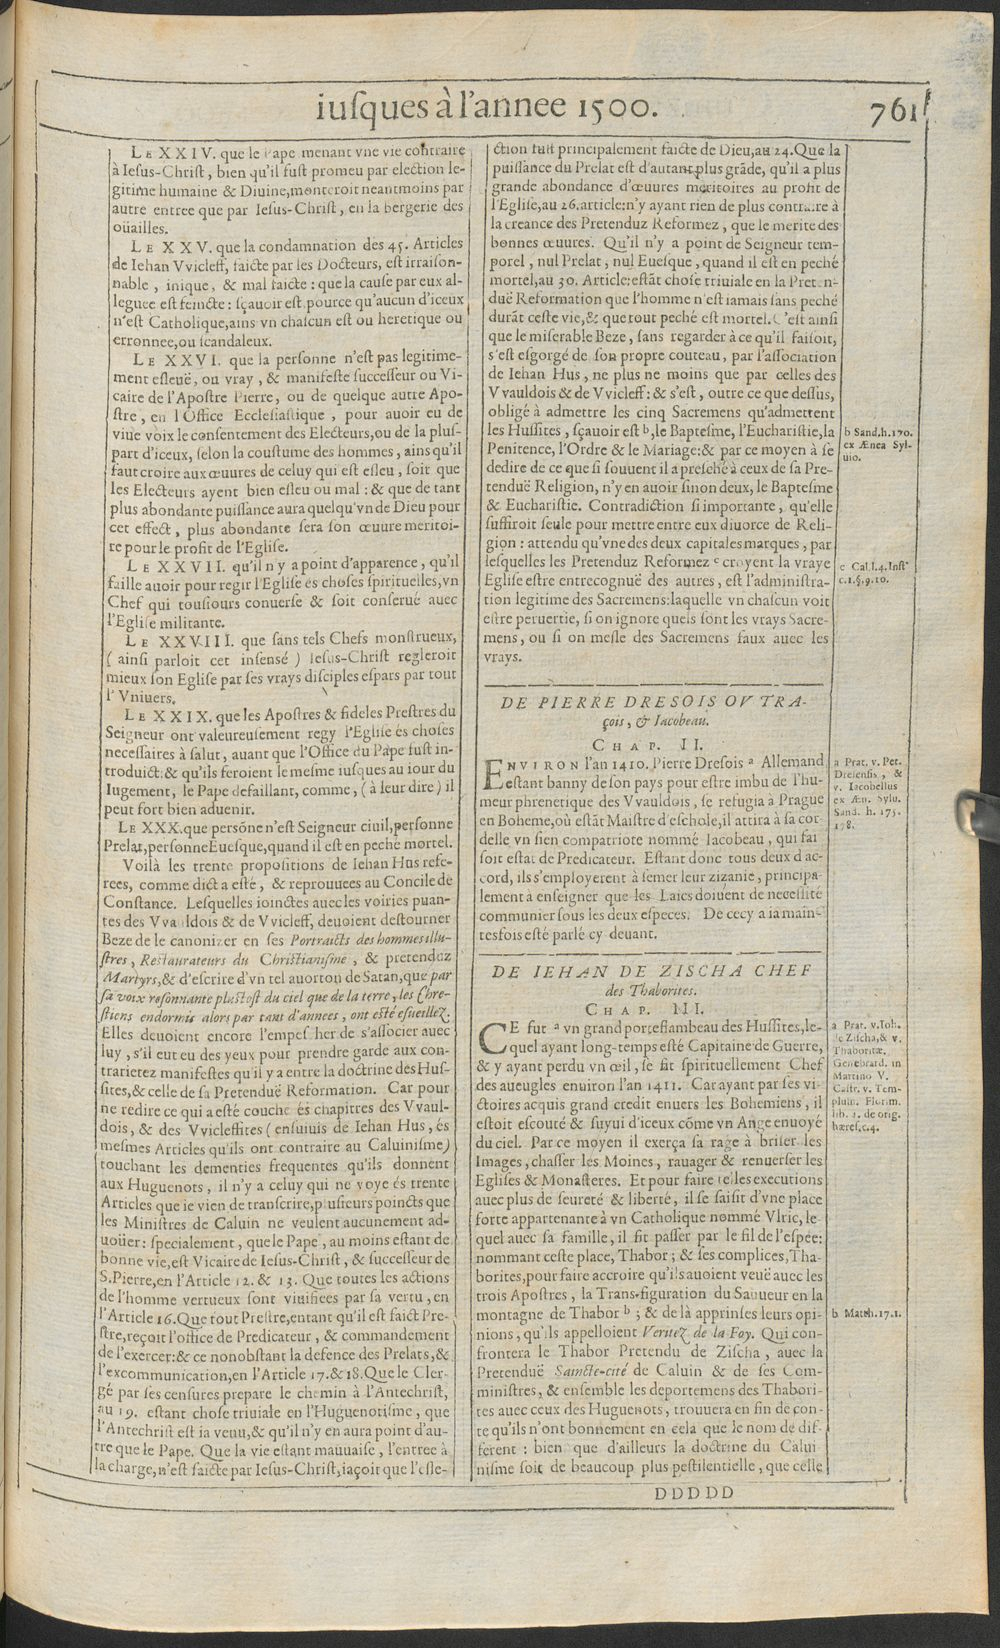 iusques à l'annee 1500. 761
LE XXIV. que le Pape menant vne vie contraire
à Iesus-Christ, bien qu'il fust promeu par election le-
gitime humaine & Diuine, monteroit neantmoins par
autre entree que par Iesus-Christ, en la bergerie des
oüailles.
LE XXV. que la condamnation des 45. Articles
de Iehan Vvicleff, faicte par les Docteurs, est irraison-
nable, inique, & mal faicte : que la cause par eux al-
leguee est feincte : sçauoir est, pource qu'aucun d'iceux
n'est Catholique, ains vn chascun est ou heretique ou
erronnee, ou scandaleux.
LE XXVI. que la personne n'est pas legitime-
ment esleuë, ou vray, & manifeste successeur ou Vi-
caire de l'Apostre Pierre, ou de quelque autre Apo-
stre, en l'Office Ecclesiastique, pour auoir eu de
viue voix le consentement des Electeurs, ou de la plus-
part d'iceux, selon la coustume des hommes, ains qu'il
faut croire aux œuures de celuy qui est esleu, soit que
les Electeurs ayent bien esleu ou mal : & que de tant
plus abondante puissance aura quelqu'vn de Dieu pour
cet effect, plus abondante sera son œuure meritoi-
re pour le profit de l'Eglise.
LE XXVII. qu'il n'y a point d'apparence, qu'il
faille auoir pour regir l'Eglise és choses spirituelles, vn
Chef qui tousiours conuerse & soit conserué auec
l'Eglise militante.
LE XXVIII. que sans tels Chefs monstrueux,
( ainsi parloit cet insensé ) Iesus-Christ regleroit
mieux son Eglise par ses vrays disciples espars par tout
l'Vniuers.
LE XXIX. que les Apostres & fideles Prestres du
Seigneur ont valeureusement regy l'Eglise és choses
necessaires à salut, auant que l'Office du Pape fust in-
troduict : & qu'ils feroient le mesme iusques au iour du
Iugement, le Pape defaillant, comme, ( à leur dire ) il
peut fort bien aduenir.
LE XXX. que persõne n'est Seigneur ciuil, personne
Prelat, personne Euesque, quand il est en peché mortel.
Voilà les trente propositions de Iehan Hus refe-
rees, comme dict a esté, & reprouuees au Concile de
Constance. Lesquelles ioinctes auec les voiries puan-
tes des Vvauldois & de Vvicleff, deuoient destourner
Beze de le canonizer en ses Portraicts des hommes illu-
stres, Restaurateurs du Christianisme, & pretenduz
Martyrs, & d'escrire d'vn tel auorton de Satan, que par
sa voix resonnante plustost du ciel que de la terre, les Chre-
stiens endormis alors par tant d'annees, ont esté esueillez.
Elles deuoient encore l'empescher de s'associer auec
luy, s'il eut eu des yeux pour prendre garde aux con-
trarietez manifestes qu'il y a entre la doctrine des Hus-
sites, & celle de sa Pretenduë Reformation. Car pour
ne redire ce qui a esté couché és chapitres des Vvaul-
dois, & des Vvicleffites ( ensuiuis de Iehan Hus, és
mesmes Articles qu'ils ont contraire au Caluinisme)
touchant les dementies frequentes qu'ils donnent
aux Huguenots, il n'y a celuy qui ne voye és trente
Articles que ie vien de transcrire, plusieurs poincts que
les Ministres de Caluin ne veulent aucunement ad-
uoüer: specialement, que le Pape, au moins estant de
bonne vie, est Vicaire de Iesus-Christ, & successeur de
S. Pierre, en l'Article 12. & 13. Que toutes les actions
de l'homme vertueux sont viuifiees par sa vertu, en
l'Article 16. Que tout Prestre, entant qu'il est faict Pre-
stre, reçoit l'office de Predicateur, & commandement
de l'exercer : & ce nonobstant la defence des Prelats, &
l'excommunication, en l'Article 17. & 18. Que le Cler-
gé par ses censures prepare le chemin à l'Antechrist,
au 19. estant chose triuiale en l'Huguenotisme, que
l'Antechrist est ia venu, & qu'il n'y en aura point d'au-
tre que le Pape. Que la vie estant mauuaise, l'entree à
la charge, n'est faicte par Iesus-Christ, iaçoit que l'esle-
ction fust principalement faicte de Dieu, au 24. Que la
puissance du Prelat est d'autant plus grãde, qu'il a plus
grande abondance d'œuures meritoires au profit de
l'Eglise, au 26. article: n'y ayant rien de plus contraire à
la creance des Pretenduz Reformez, que le merite des
bonnes œuures. Qu'il n'y a point de Seigneur tem-
porel, nul Prelat, nul Euesque, quand il est en peché
mortel, au 30. Article: estãt chose triuiale en la Preten-
duë Reformation que l'homme n'est iamais sans peché
durãt ceste vie, & que tout peché est mortel. C'est ainsi
que le miserable Beze, sans regarder à ce qu'il faisoit,
s'est esgorgé de son propre couteau, par l'association
de Iehan Hus, ne plus ne moins que par celles des
Vvauldois & de Vvicleff : & s'est, outre ce que dessus,
obligé à admettre les cinq Sacremens qu'admettent
les Hussites, sçauoir est b, le Baptesme, l'Eucharistie, la
Penitence, l'Ordre & le Mariage: & par ce moyen à se
dedire de ce que si souuent il a presché à ceux de sa Pre-
tenduë Religion, n'y en auoir sinon deux, le Baptesme
& Eucharistie. Contradiction si importante, qu'elle
suffiroit seule pour mettre entre eux diuorce de Reli-
gion : attendu qu'vne des deux capitales marques, par
lesquelles les Pretenduz Reformez c croyent la vraye
Eglise estre entrecognuë des autres, est l'administra-
tion legitime des Sacremens: laquelle vn chascun voit
estre peruertie, si on ignore quels sont les vrays Sacre-
mens, ou si on mesle des Sacremens faux auec les
vrays.
b Sand. h. 170.
ex Ænea Syl-
uio.
c Cal. l. 4. Inst
c. 1. §. 9. 10.
DE PIERRE DRESOIS OV TRA-
çois, & Iacobeau.
CHAP. II.
ENVIRON l'an 1410. Pierre Dresois a Allemand
estant banny de son pays pour estre imbu de l'hu-
meur phrenetique des Vvauldois, se refugia à Prague
en Boheme, où estãt Maistre d'eschole, il attira à sa cor
delle vn sien compatriote nommé Iacobeau, qui fai
soit estat de Predicateur. Estant donc tous deux d'ac-
cord, ils s'employerent à semer leur zizanie, principa
lement à enseigner que les Laics doiuent de necessité
communier sous les deux especes. De cecy a ia main-
tesfois esté parlé cy deuant.
a Prat. v. Pet.
Dresensis, &
v. Iacobellus
ex Æn. Sylu.
Sand. h. 175.
178.
DE IEHAN DE ZISCHA CHEF
des Thaborites.
CHAP. III.
CE fut a vn grand porteflambeau des Hussites, le-
quel ayant long-temps esté Capitaine de Guerre,
& y ayant perdu vn œil, se fit spirituellement Chef
des aueugles enuiron l'an 1411. Car ayant par ses vi-
ctoires acquis grand credit enuers les Bohemiens, il
estoit escouté & suyui d'iceux cõme vn Ange enuoyé
du ciel. Par ce moyen il exerça sa rage à briser les
Images, chasser les Moines, rauager & renuerser les
Eglises & Monasteres. Et pour faire telles executions
auec plus de seureté & liberté, il se saisit d'vne place
forte appartenante à vn Catholique nommé Vlric, le
quel auec sa famille, il fit passer par le fil de l'espee:
nommant ceste place, Thabor ; & ses complices, Tha-
borites, pour faire accroire qu'ils auoient veuë auec les
trois Apostres, la Transfiguration du Sauueur en la
montagne de Thabor b ; & de là apprinses leurs opi-
nions, qu'ils appelloient Veritez de la Foy. Qui con-
frontera le Thabor Pretendu de Zischa, auec la
Pretenduë Saincte-cité de Caluin & de ses Com-
ministres, & ensemble les deportemens des Thabori-
tes auec ceux des Huguenots, trouuera en fin de con-
te qu'ils n'ont bonnement en cela que le nom de dif-
ferent : bien que d'ailleurs la doctrine du Calui
nisme soit de beaucoup plus pestilentielle, que celle
a Prat. v. Ioh.
de Zischa, & v.
Thaboritæ.
Genebrard. in
Martino V.
Castr. v. Tem-
plum. Florim.
lib. 2. de orig.
hæres. c. 4.
b Matth. 17. 1.
DDDDD